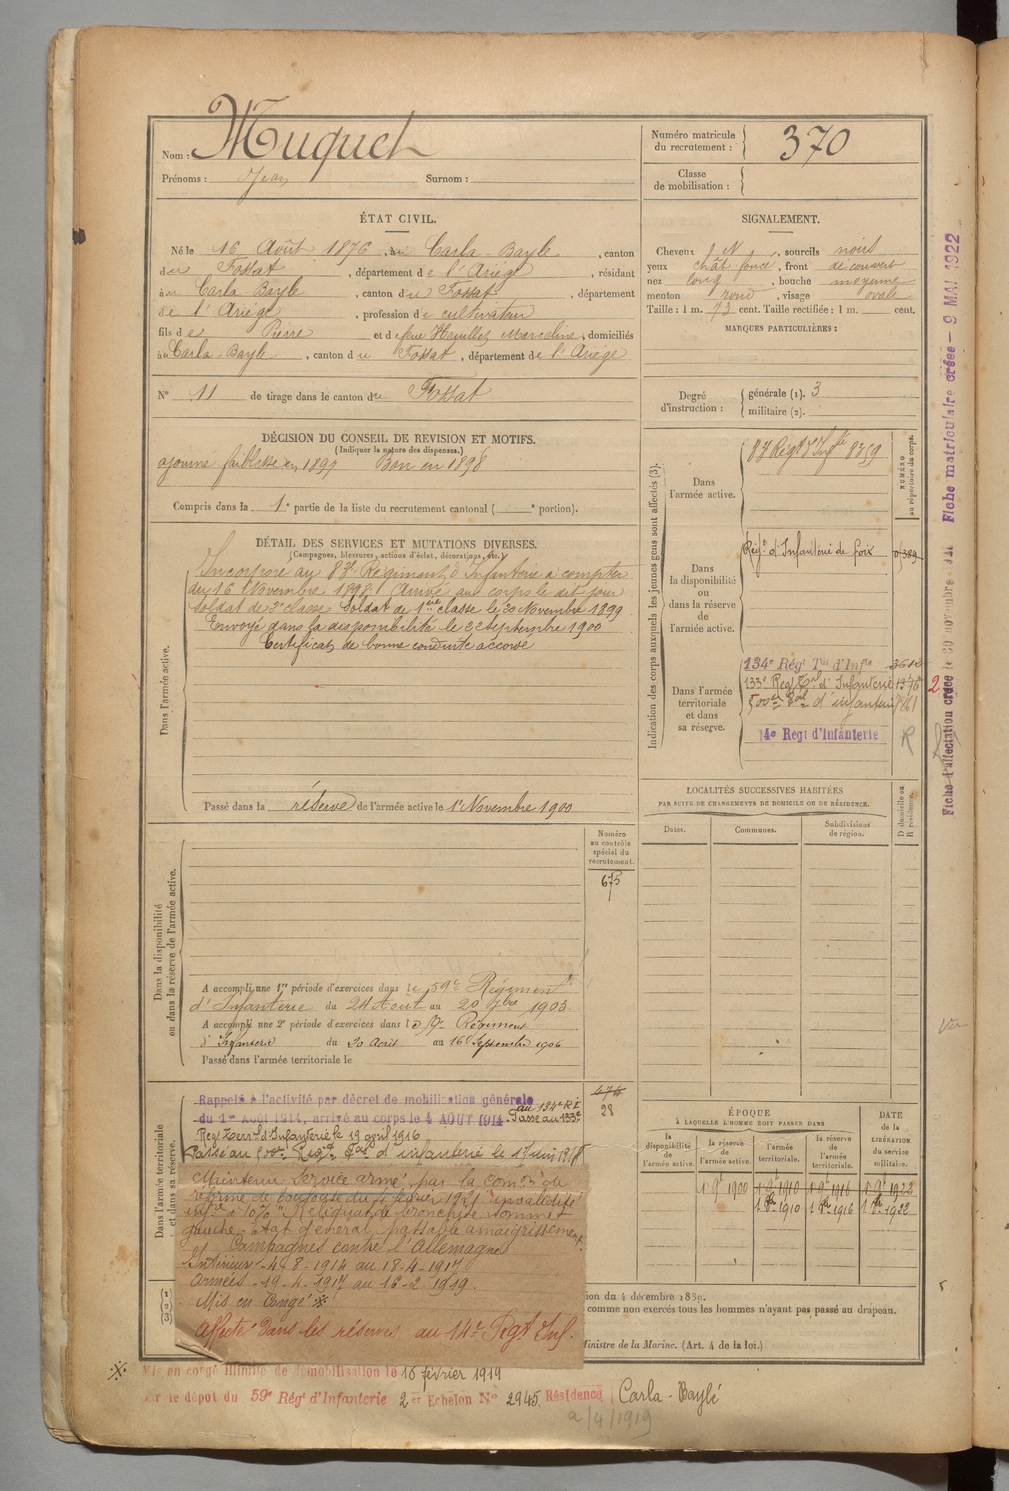 Nom : Muquet
Prénoms : Jean Surnom :
Numéro matricule du recrutement : 370
Classe de mobilisation :
ÉTAT CIVIL.
Né le 16 Août 1876, à u Carla-Bayle, canton
du Fossat, département de l'Ariège, résidant
à u Carla-Bayle, canton du Fossat, département
de l'Ariège, profession de cultivateur
fils de Pierre et de feue Heuillet Marceline, domiciliés
à u Carla-Bayle, canton du Fossat, département de l'Ariège
N° 11 de tirage dans le canton du Fossat
SIGNALEMENT.
Cheveux N, sourcils noirs
yeux chât foncé, front découvert
nez long, bouche moyenne
menton rond, visage ovale
Taille : 1 m. 73 cent. Taille rectifiée : 1 m. cent.
MARQUES PARTICULIÈRES :
Degré d'instruction : générale (1). 3
militaire (2).
DÉCISION DU CONSEIL DE REVISION ET MOTIFS.
(Indiquer la nature des dispenses.)
ajourné faiblesse en 1897 Bon en 1898
Compris dans la 1e partie de la liste du recrutement cantonal ( e portion).
DÉTAIL DES SERVICES ET MUTATIONS DIVERSES.
(Campagnes, blessures, actions d'éclat, décorations, etc.)
Dans l'armée active.
Incorporé au 83e Régiment d'Infanterie à compter
du 16 Novembre 1898. Arrivé au corps le dit jour
Soldat de 2e classe. Soldat de 1ère classe le 30 Novembre 1899
Envoyé dans la disponibilité le 22 Septembre 1900
Certificat de bonne conduite accordé
Passé dans la réserve de l'armée active le 1er Novembre 1900
Indication des corps auxquels les jeunes gens sont affectés (3).
NUMÉRO au répertoire du corps.
Dans l'armée active.
83 Régt d'Infie 8359
Dans la disponibilité ou dans la réserve de l'armée active.
Régt d'Infanterie de foix
Dans l'armée territoriale et dans sa réserve.
134e Régt Tal d'Infie
133e Regt Tal d'Infanterie
500e Tal d'infanterie
14e Regt d'Infanterie R
LOCALITÉS SUCCESSIVES HABITÉES
PAR SUITE DE CHANGEMENTS DE DOMICILE OU DE RÉSIDENCE.
Dates. Communes. Subdivisions de région. D domicile ou R résidence.
Numéro au contrôle spécial du recrutement.
675
Dans la disponibilité ou dans la réserve de l'armée active.
A accompli une 1re période d'exercices dans le 59e Régiment
d'Infanterie du 24 Août au 20 7bre 1903
A accompli une 2e période d'exercices dans le 59e Régiment
d'Infanterie du 20 Août au 16 Septembre 1906
Passé dans l'armée territoriale le
Dans l'armée territoriale et dans sa réserve.
Rappelé à l'activité par décret de mobilisation générale
du 1er AOUT 1914, arrivé au corps le 4 AOUT 1914 au 134e RI Passé au 133e
Regt Terral d'Infanterie le 19 avril 1916
Passé au 500e Regt Tal d'infanterie le 1 Juin 1918
28
Maintenu Service armé par la Comon de
réforme de Toulouse du 4 février 1921 "invalidité
infre à 10%" Reliquat de bronchite sommet
gauche. Etat général passable amaigrissement
Campagnes contre l'Allemagne
Intérieur 4-8-1914 au 18-4-1917
Armées 19-4-1917 au 16-2-1919.
Mis en Congé ※
Affecté dans les réserves au 14e Rgt Inf.
ÉPOQUE
À LAQUELLE L'HOMME DOIT PASSER DANS
la disponibilité de l'armée active. la réserve de l'armée active. l'armée territoriale. la réserve de l'armée territoriale.
DATE DE LA LIBÉRATION DU service militaire.
1 9bre 1900 1 9bre 1910 1 9bre 1916 1 9bre 1922
1 8bre 1910 1 8bre 1916 1 8bre 1922
(1)
(2)
(3)
ion du 4 décembre 1889.
comme non exercés tous les hommes n'ayant pas passé au drapeau.
Ministre de la Marine. (Art. 4 de la loi.)
※ Mis en congé illimité de démobilisation le 16 février 1919
le dépôt du 59e Régt d'Infanterie 2e Echelon N° 2945. Résidence Carla-Baylé
a/4/1919
Fiche matriculaire créée - 9 MAI 1922
Fiche d'affectation créée le 30 novembre
Vu